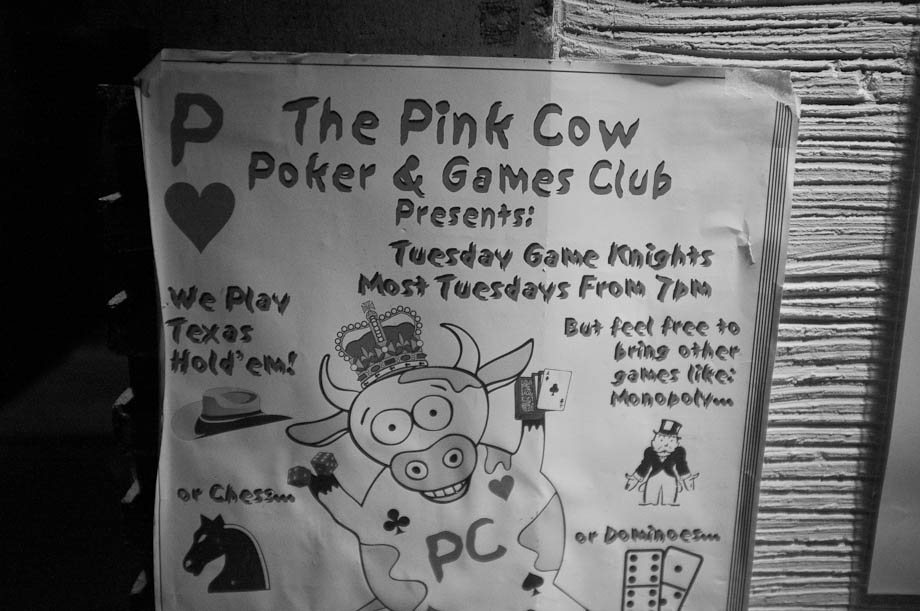 P
The Pink Cow
Poker & Games Club
Presents:
Tuesday Game Knights
Most Tuesdays From 7pm
We Play
Texas
Hold'em!
But feel free to
bring other
games like:
Monopoly...
or Chess...
PC
or Dominoes...